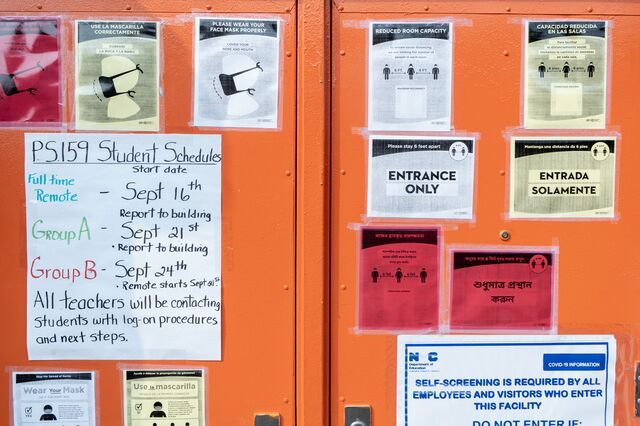 USE LA MASCARILLA
CORRECTAMENTE
CÚBRASE
LA BOCA Y LA NARIZ
PLEASE WEAR YOUR
FACE MASK PROPERLY
COVER YOUR
NOSE AND MOUTH
REDUCED ROOM CAPACITY
6 FT 6 FT
CAPACIDAD REDUCIDA
EN LAS SALAS
Please stay 6 feet apart
ENTRANCE
ONLY
Mantenga una distancia de 6 pies
ENTRADA
SOLAMENTE
P.S.159 Student Schedules
Start date
Full time
Remote - Sept 16th
Report to building
Group A - Sept 21st
• Report to building
Group B - Sept 24th
• Remote starts Sept 21st
All teachers will be contacting
students with log-on procedures
and next steps.
শুধুমাত্র প্রস্থান
করুন
Stop the Spread of Germs
Wear Your Mask
Use la mascarilla
NYC
Department of
Education
COVID-19 INFORMATION
SELF-SCREENING IS REQUIRED BY ALL
EMPLOYEES AND VISITORS WHO ENTER
THIS FACILITY
DO NOT ENTER IF: